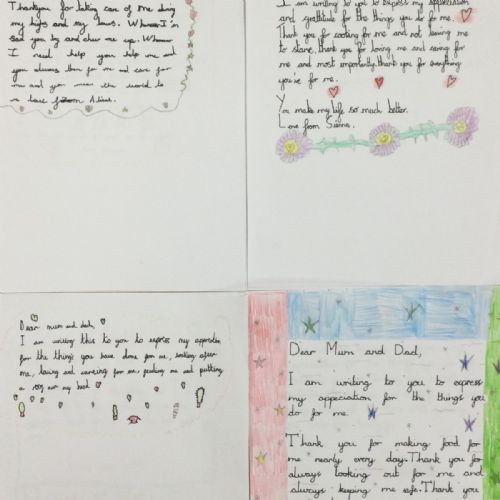 Thankyou for taking care of me during
my highs and my lows. Whenever I'm
sad you try and cheer me up. Whenever
I need help you help me and
you always there for me and care for
me and you mean the world to
me love from
I am writing to you to express my appreciation
and gratitude for the things you do for me.
Thank you for cooking for me and not leaving me
to starve, thank you for loving me and caring for
me and most importantly, thank you for everything
you've for me.
You make my life so much better.
Love from Sienna.
Dear mum and dad,
I am writing this to you to express my appreciation
for the things you have done for me, looking after
me, loving and caring for me, feeding me and putting
a roof over my head
Dear Mum and Dad,
I am writing to you to express
my appeciation for the things you
do for me.
Thank you for making food for
me nearly every day. Thank you for
always looking out for me and
always keeping me safe. Thank you